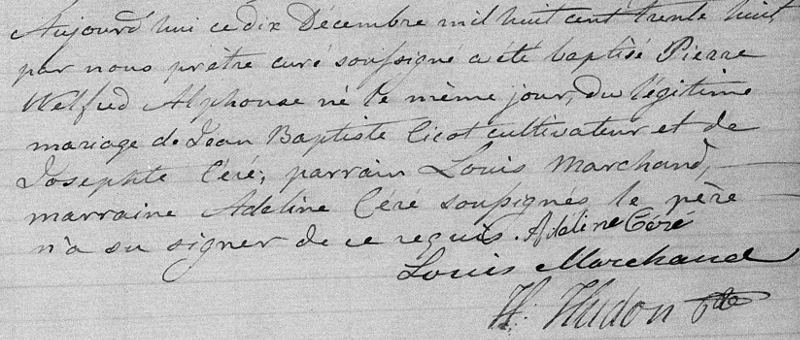 Aujourd'hui ce dix Décembre mil huit cent trente huit,
par nous prêtre curé soussigné a été baptisé Pierre
Welfred Alphonse né le même jour, du légitime
mariage de Jean Baptiste Cicot cultivateur et de
Josephte Céré; parrain Louis Marchand,
marraine Adeline Céré soussignés, le père
n'a su signer de ce requis. Adeline Céré
Louis Marchand
H. Hudon Ptre